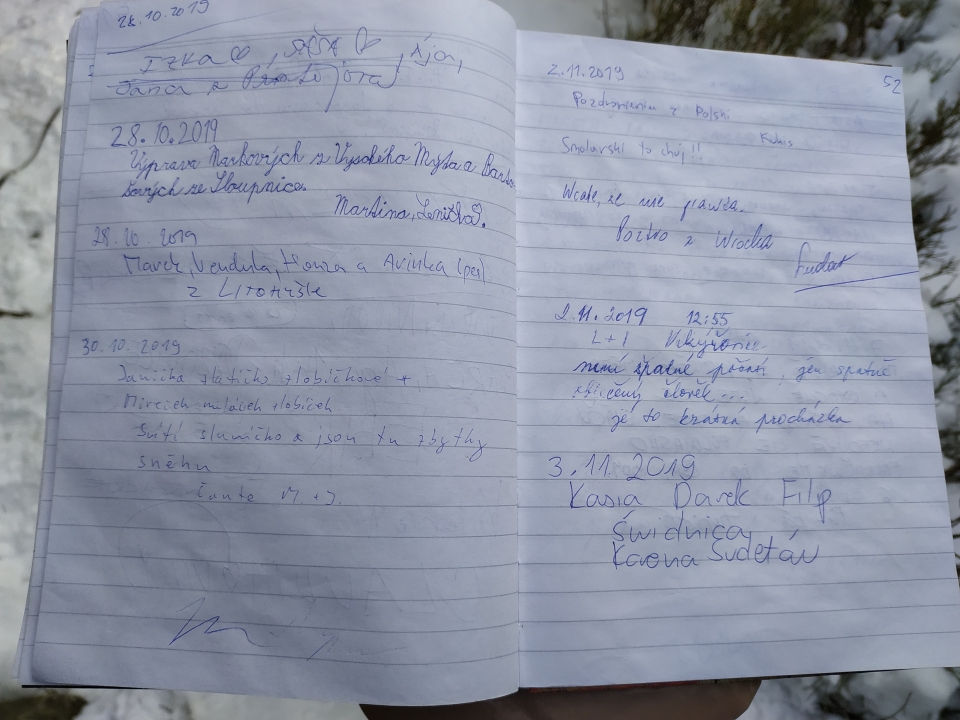 28.10.2019
IZKA
Jança a
28.10.2019
Výprava Markových z Vysokého Mýta a Barto-
šových ze Sloupnice.
Martina, Lenička.
28.10.2019
Marek, Vendula, Honza a Avinka (pes)
z Litohrše
30.10.2019
Janička zlatíčko zlobíčkové +
Mireček miláček zlobíček
Svítí sluníčko a jsou tu zbytky
sněhu
Čante M + J.
52
2.11.2019
Pozdrowienia z Polski
Kukis
Smolarski to chuj!!
Wcale, że nie prawda.
Pozdro z Wrocka
2.11.2019 12:55
L + I
není špatné počasí, jen špatně
člověk...
je to krátká procházka
3.11.2019
Kasia Darek Filip
Świdnica
Korona Sudetów